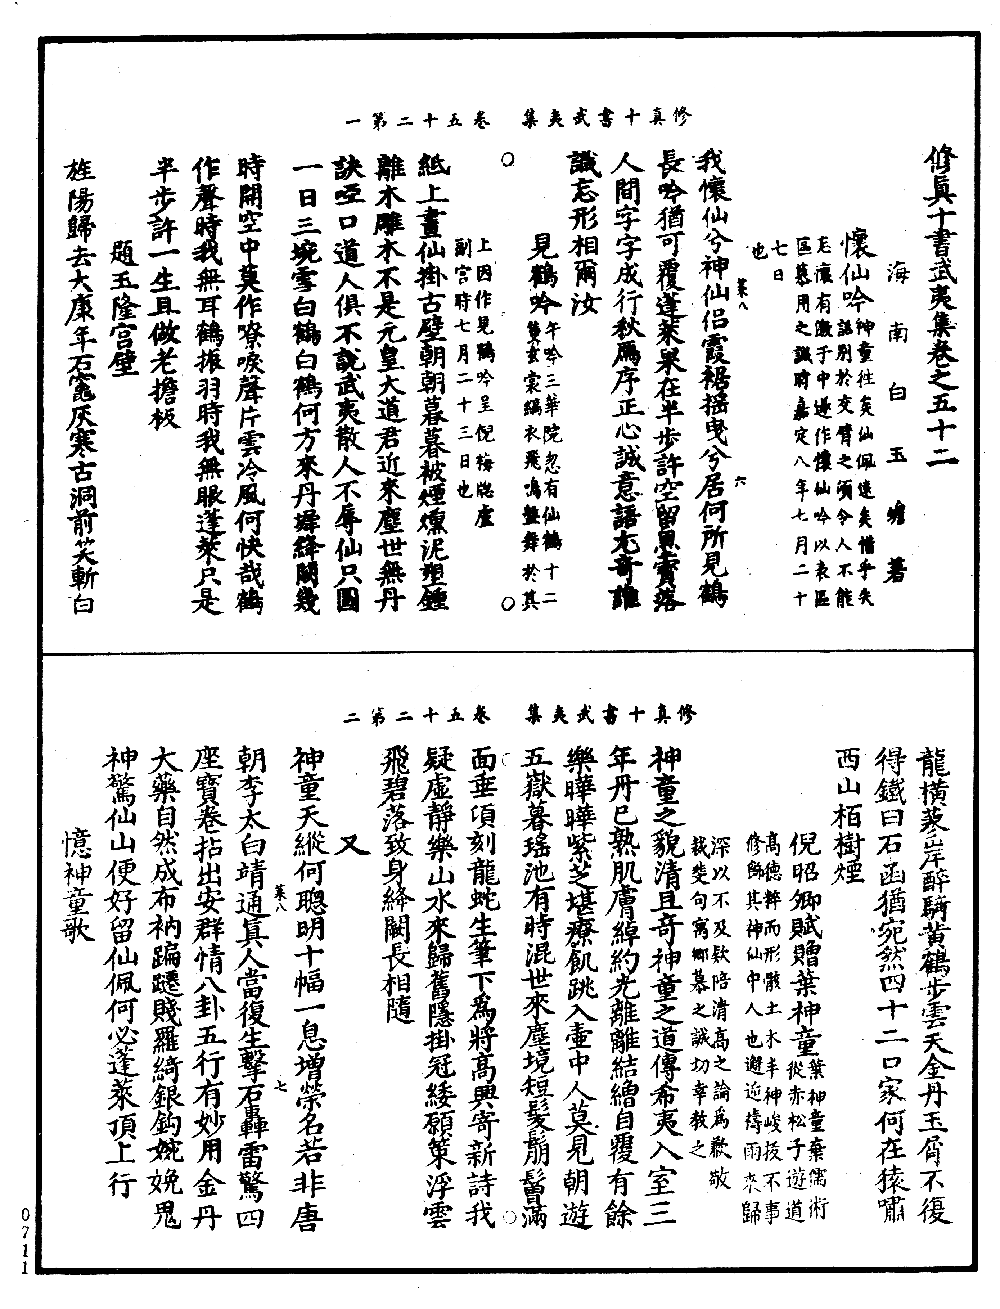 修真十書武夷集　卷五十二第一
修眞十書武夷集卷之五十二
海南白玉蟾著
懷仙吟
神童徃矣仙佩遠矣惜乎失
話別於交臂之頃令人不能
忘懷有激于中遂作懷仙吟以表區
區慕用之誠時嘉定八年七月二十
七日
也
我懷仙兮神仙侣霞裾搖曳兮居何所見鶴
葉八
六
長吟猶可覆蓬萊果在半步許空留黑雲落
人間字字成行秋鴈序正心誠意語尤奇誰
識忘形相爾汝
見鶴吟
午吟三華院忽有仙鶴十二
黄玄裳縞衣飛鳴盤舞於其
上因作見鶴吟呈倪梅牕虛
副宮時七月二十三日也
紙上畫仙掛古壁朝朝暮暮被煙燻泥塑鍾
離木雕木不是元皇大道君近來塵世無丹
訣啞口道人俱不說武夷散人不辱仙只圓
一日三境雪白鶴白鶴何方來丹墀絳闕幾
時開空中莫作嘹唳聲片雲冷風何快哉鶴
作聲時我無耳鶴振羽時我無眼蓬萊只是
半步許一生且做老擔板
題玉隆宮壁
旌陽歸去太康年石竈灰寒古洞前笑斬白
修真十書武夷集　卷五十二第二
龍橫蓼岸醉騎黄鶴步雲天金丹玉屑不復
得鐵臼石函猶宛然四十二口家何在猿嘯
西山栢樹煙
倪昭卿賦贈葉神童
葉神童棄儒術
從赤松子遊道
高德粹而形骸土木丰神峻拔不事
修飾其神仙中人也邂逅禱雨來歸
深以不及欵陪清高之論爲歉敬
裁斐句寓鄉慕之誠切幸教之
神童之貌清且奇神童之道傳希夷入室三
年丹已熟肌膚綽約光離離結繒自覆有餘
樂曄曄紫芝堪療飢跳入壷中人莫見朝遊
五嶽暮瑶池有時混世來塵境短髪鬅鬙滿
面垂項刻龍虵生筆下爲將高興寄新詩我
疑虛靜樂山水來歸舊隱掛冠緌願策浮雲
飛碧落致身絳闕長相隨
又
神童天縱何聰明十幅一息增榮名若非唐
葉八
七
朝李太白靖通眞人當復生擊石轟雷驚四
座寶卷拈出安群情八卦五行有妙用金丹
大藥自然成布衲蹁躚賤羅綺銀鈎婉娩鬼
神驚仙山便好留仙佩何必蓬萊頂上行
憶神童歌
0711